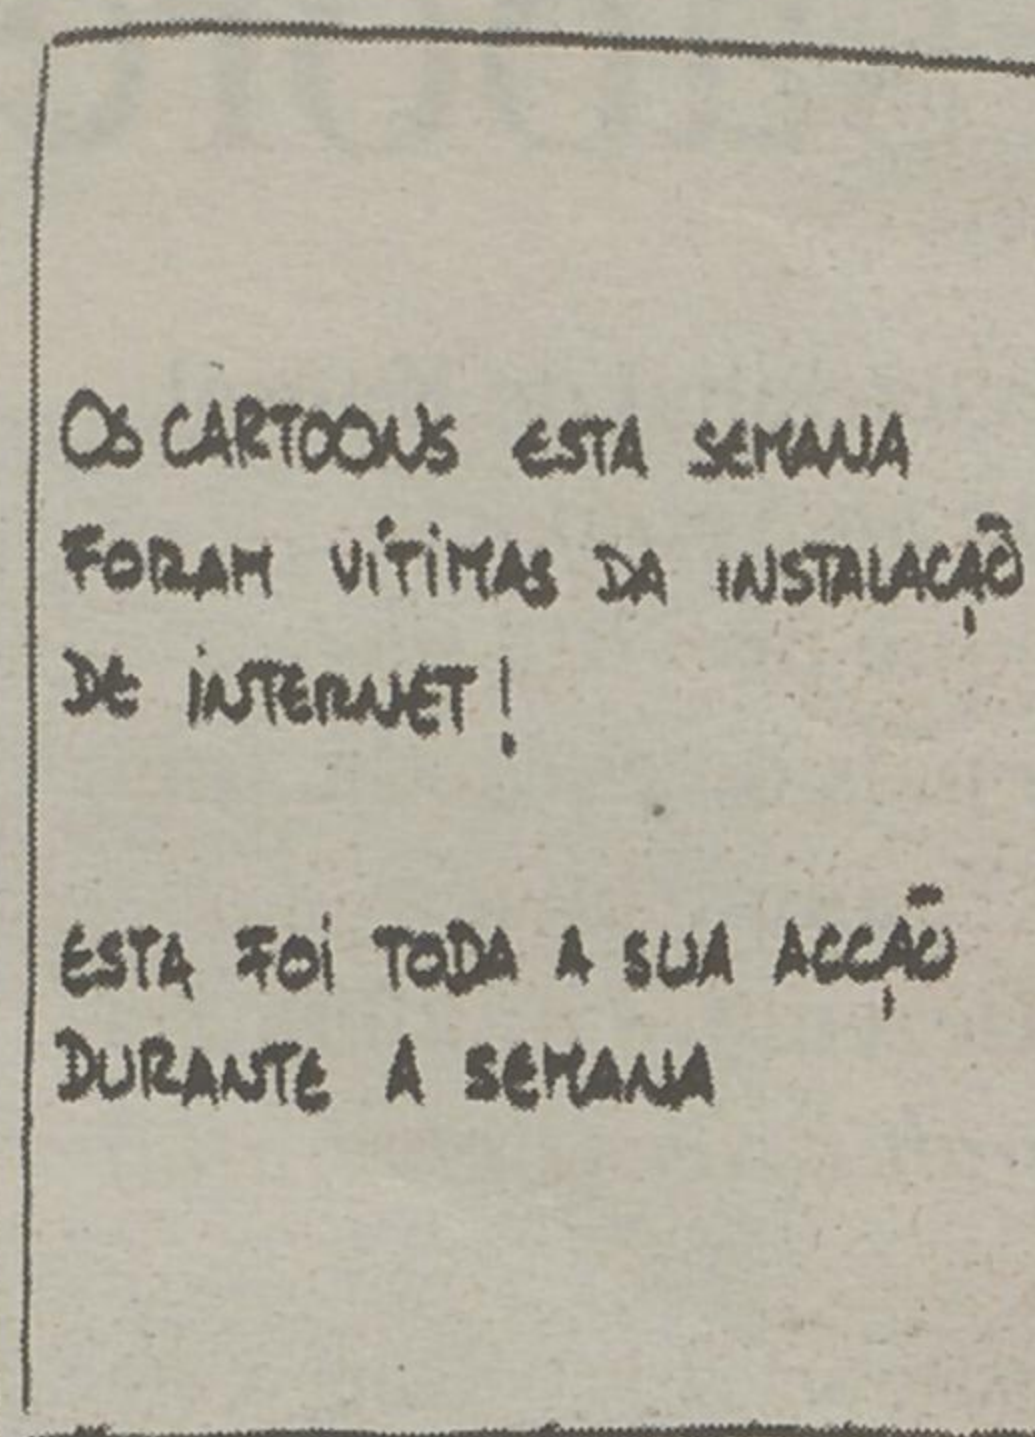 OS CARTOONS ESTA SEMANA
FORAM VÍTIMAS DA INSTALAÇÃO
DE INTERNET!
ESTA FOI TODA A SUA ACÇÃO
DURANTE A SEMANA